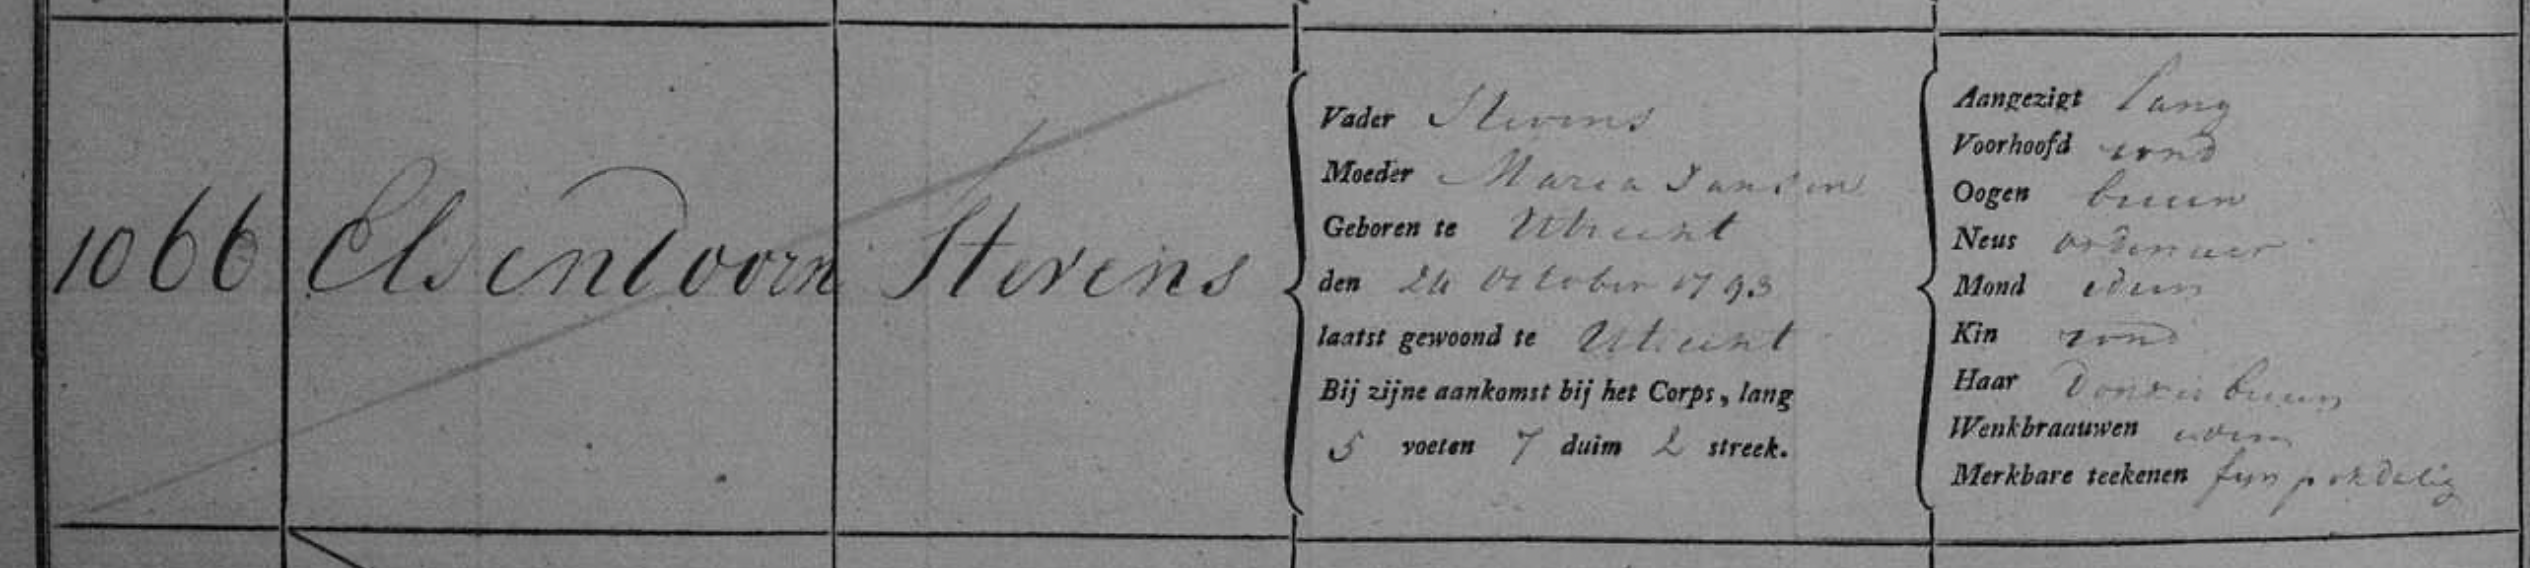 1066
Elsendoorn
Stevens
Vader Stevens
Moeder Maria Jansen
Geboren te Utrecht
den 24 October 1793
laatst gewoond te Utrecht
Bij zijne aankomst bij het Corps, lang
5 voeten 7 duim 2 streek.
Aangezigt lang
Voorhoofd rond
Oogen bruin
Neus ordinair
Mond idem
Kin rond
Haar donker bruin
Wenkbraauwen idem
Merkbare teekenen fijn pokdalig